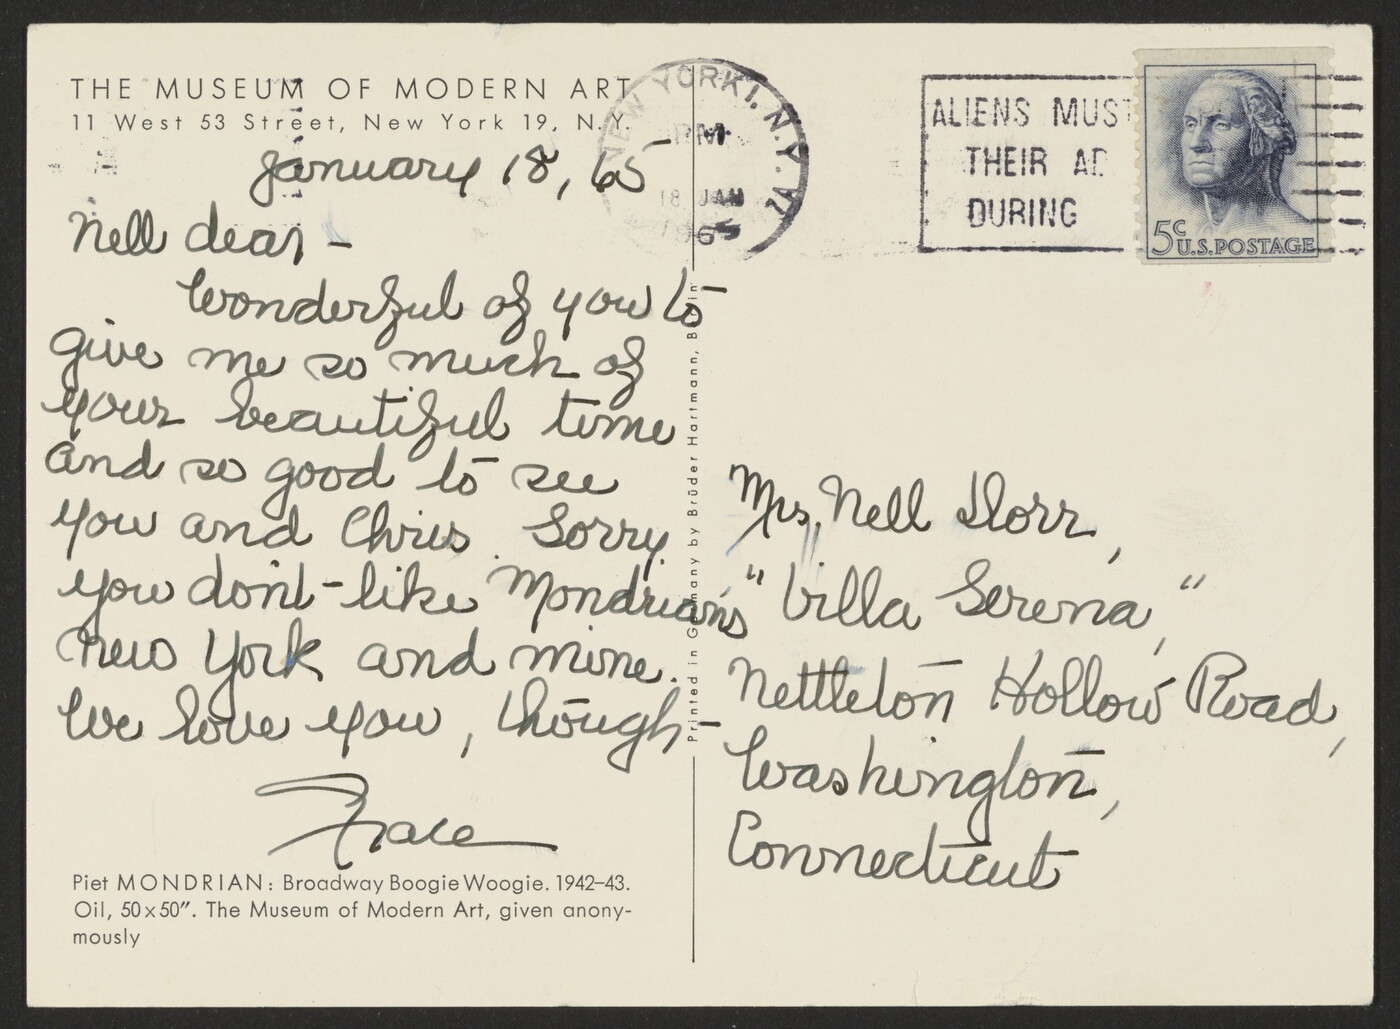 THE MUSEUM OF MODERN ART
11 West 53 Street, New York 19, N.Y.
January 18, 65
Nell dear –
Wonderful of you to
give me so much of
your beautiful time
and so good to see
you and Chris. Sorry
you don't like Mondrian's
New York and mine.
We love you, though –
Grace
Piet MONDRIAN: Broadway Boogie Woogie. 1942–43.
Oil, 50x50″. The Museum of Modern Art, given anony-
mously
Printed in Germany by Brüder Hartmann, Berlin
NEW YORK 1, N.Y.
PM
18 JAN
1965
ALIENS MUST
THEIR AD
DURING
5c U.S. POSTAGE
Mrs. Nell Dorr,
"Villa Serena,"
Nettleton Hollow Road,
Washington,
Connecticut